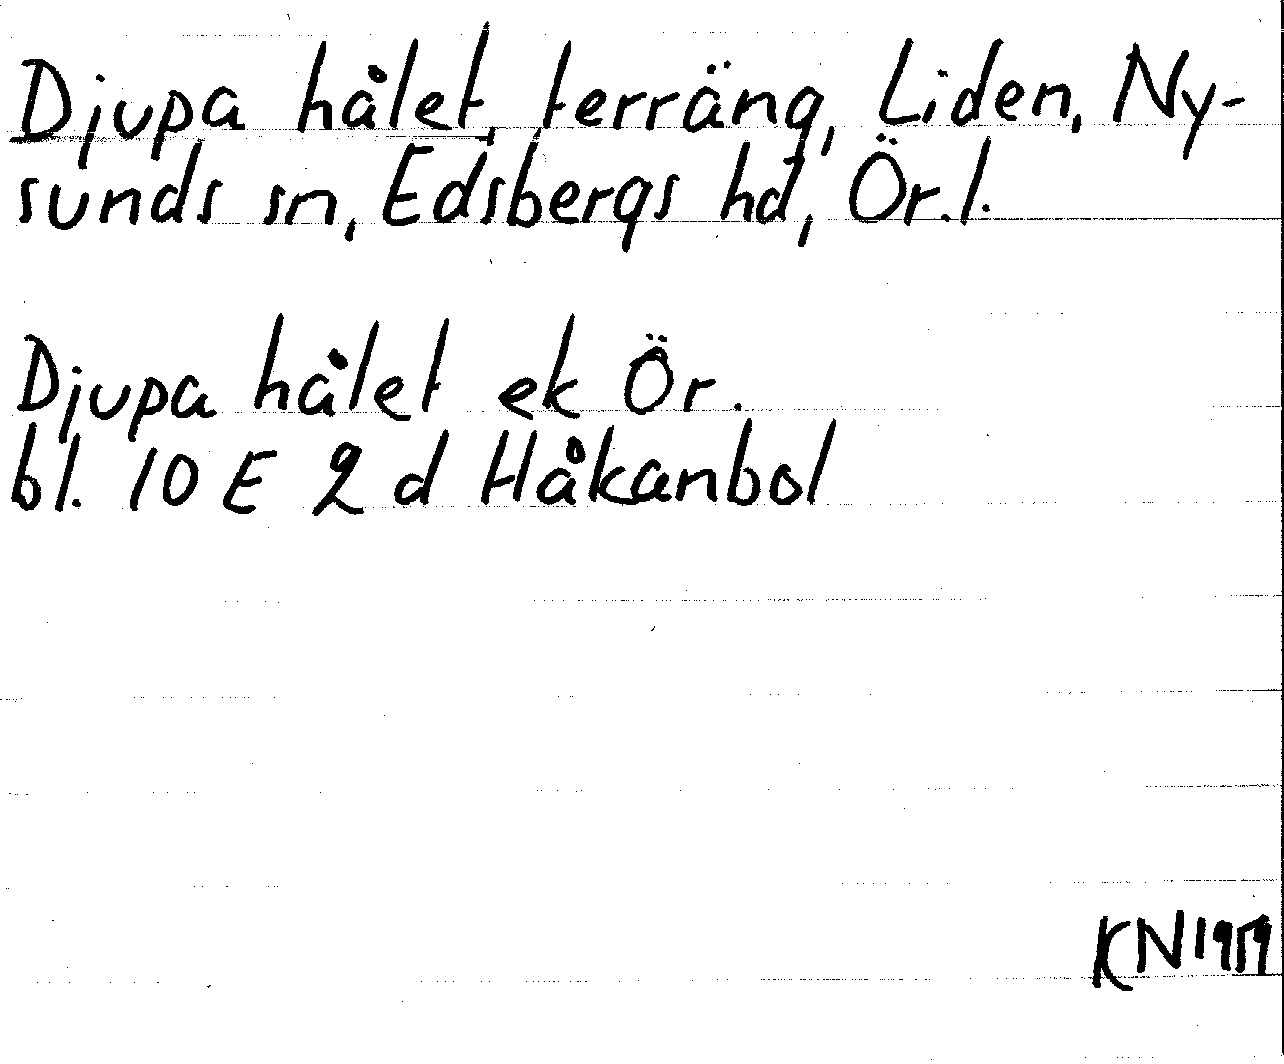 Djupa hålet, terräng, Liden, Ny-
sunds sn, Edsbergs hd, Ör.l.
Djupa hålet ek Ör.
bl. 10 E 2 d Håkanbol
KN